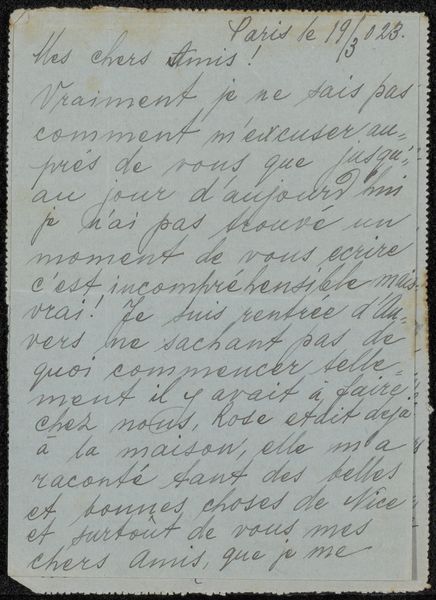 Paris le 19/3 023.
Mes chers Amis!
Vraiment je ne sais pas
comment m'excuser au-
près de vous que jusqu'-
au jour d'aujourd'hui
je n'ai pas trouvé un
moment de vous ecrire
c'est incompréhensible mais
vrai! Je suis rentrée d'An-
vers ne sachant pas de
quoi commencer telle-
ment il y avait à faire
chez nous, Rose etait deja
à la maison, elle m'a
raconté tant des belles
et bonnes choses de Nice
et surtoût de vous mes
chers Amis, que je me